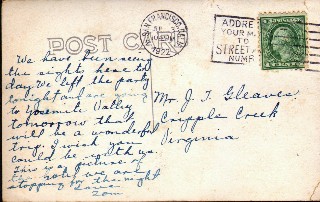 POST CARD
SAN FRANCISCO, CAL.
1922
ADDRE
YOUR M
TO
STREET
NUMB
We have been seeing
the sights here to
day. We left the party
tonight and are going
to Yosemite Valley
tomorrow that
will be a wonderful
trip. I wish you
could be with us.
This is a picture of
the hotel we are
stopping for the night
Mr. J. T. Gleaves
Cripple Creek
Virginia